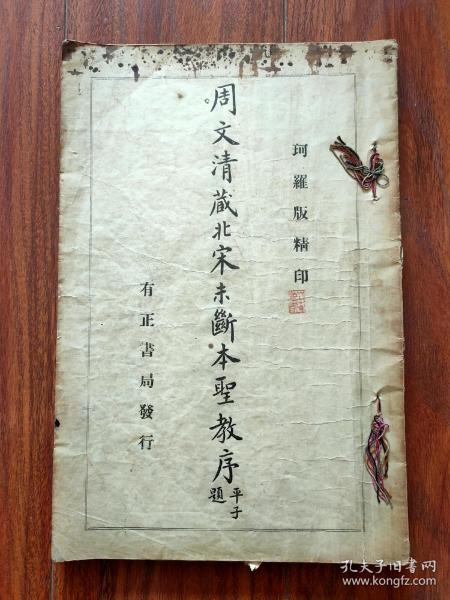 珂羅版精印
周文清藏北宋未斷本聖教序
平子
題
有正書局發行
孔夫子旧书网
www.kongfz.com